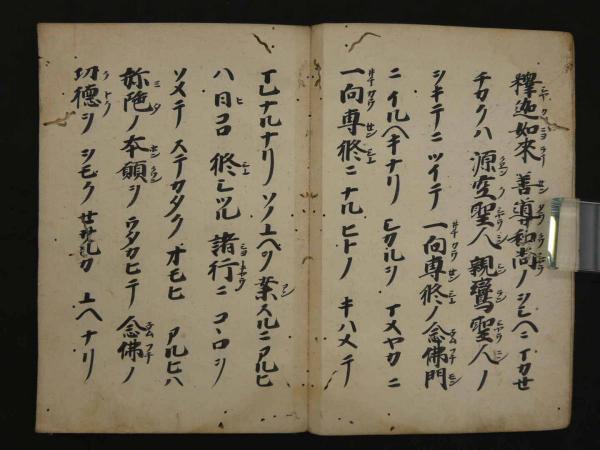 釋迦如來 善導和尚ノヲシヘニマカセ
チカクハ 源空聖人 親鸞聖人ノ
ニツイテ 一向専修ノ念佛門
ニイルヘキナリ シカルヲ マメヤカニ
一向専修ニナルヒトノ キハメテ
マレナルナリ ソノユヘヲ案スルニアルヒ
ハ日コロ 修シツル 諸行ニコヽロヲ
ソメテ ステカタク オモヒ アルヒハ
弥陀ノ本願ヲウタカヒテ 念佛ノ
功德ヲ ユヘナリ